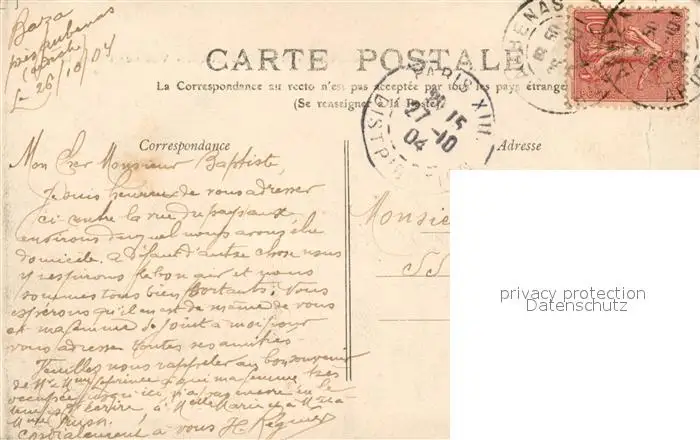 Baza
près Aubenas
(Ardèche)
le 26/10/04
CARTE POSTALE
La Correspondance au recto n'est pas acceptée par tous les pays étrangers
(Se renseigner à la Poste)
PARIS XIII
15
27-10
04
DISTRIB
Correspondance
Adresse
Mon Cher Monsieur Baptiste,
Je suis heureux de vous adresser
ci-contre la vue du pays aux
environs duquel nous avons élu
domicile, à défaut d'autre chose nous
y respirons le bon air et nous
sommes tous bien portants. Nous
espérons qu'il en est de même de vous
et ma femme se joint à moi pour
vous adresser toutes ses amitiés
Veuillez nous rappeler au bon souvenir
de Mr Mme Leprince à qui ma femme, très
occupée jusqu'ici, n'a pas encore eu le
temps d'écrire, à Melle Marie et à Mr &
Mme
cordialement à vous H. Régnier
Monsie
55
privacy protection
Datenschutz